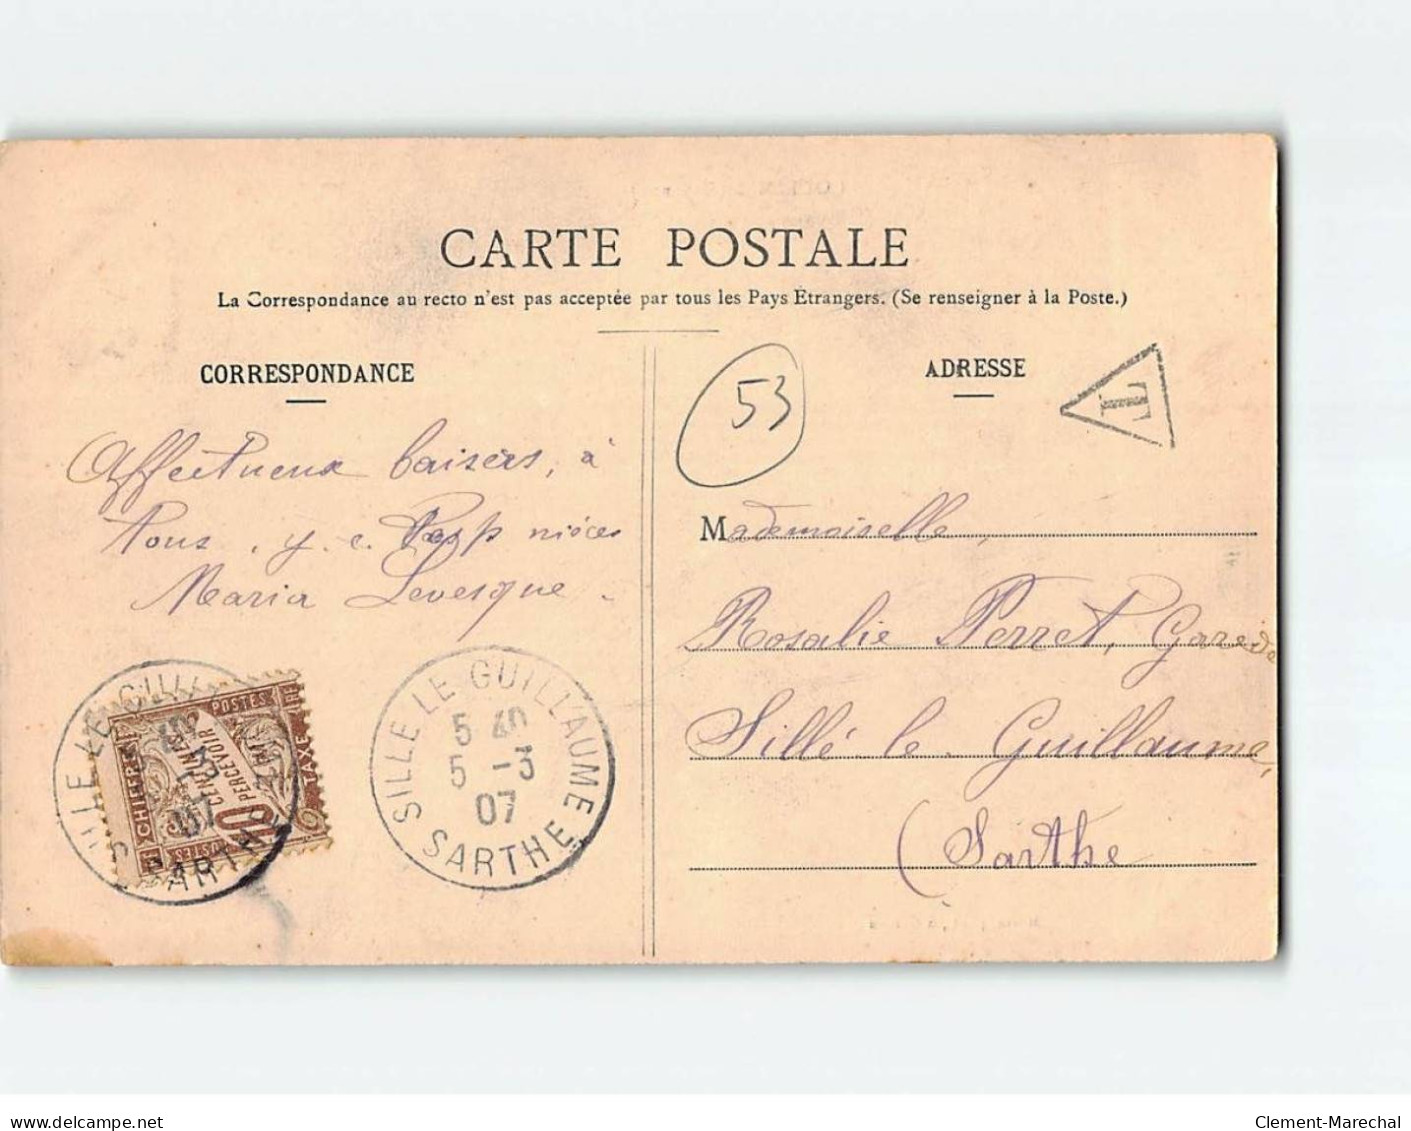 CARTE POSTALE
La Correspondance au recto n'est pas acceptée par tous les Pays Étrangers. (Se renseigner à la Poste.)
CORRESPONDANCE
Affectueux baisers, à
tous. y. c. nièces
Maria Levesque
ADRESSE
T
53
Mademoiselle,
Rosalie Perret,
Sillé le Guillaume,
(Sarthe
SILLE LE GUILLAUME
5 40
5 -3
07
SARTHE
SILLE LE GUILL
07
SARTHE
POSTES
RF
CHIFFRE
TAXE
10
CENTIMES
A
PERCEVOIR
delcampe.net
Clement-Marechal